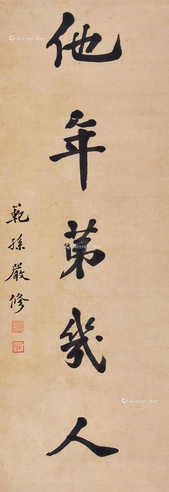 他年第幾人
範孫嚴修